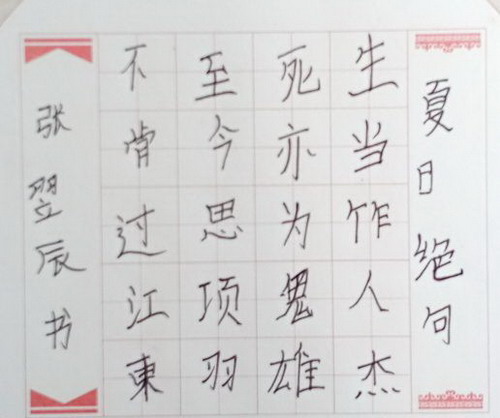 夏日绝句
生当作人杰
死亦为鬼雄
至今思项羽
不肯过江東
张翌辰书